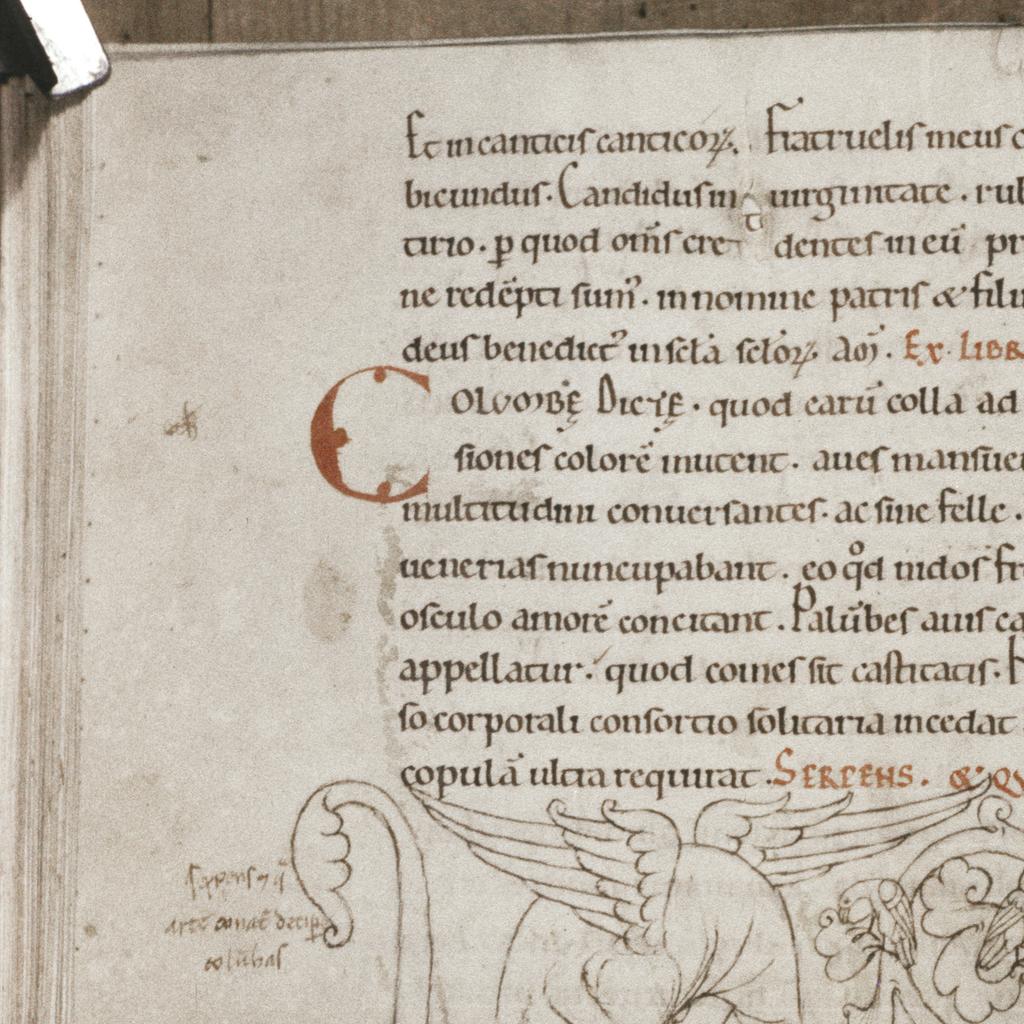 Et in canticis canticoꝝ. Fratruelis meus c
bicundus. Candidus in uirginitate. rub
tirio. ꝑ quod om̄s credentes in eū pr
ne redēpti sumꝰ. in nomine patris & filii
deus benedictꝰ in sc̄la sc̄loꝝ. Am̄. Ex LIBR
COLUMBĘ DICTĘ. quod earū colla ad
siones colorē mutent. aues mansue
multitudini conuersantes. ac sine felle.
uenerias nuncupabant. eo qd̊ nidos fr
osculo amorē concitant. Palūbes auis ca
appellatur. quod comes sit castitatis.
so corporali consortio solitaria incedat
copulā ultra requirat. SERPENS. & QU
serpens
arte decip
colūbas